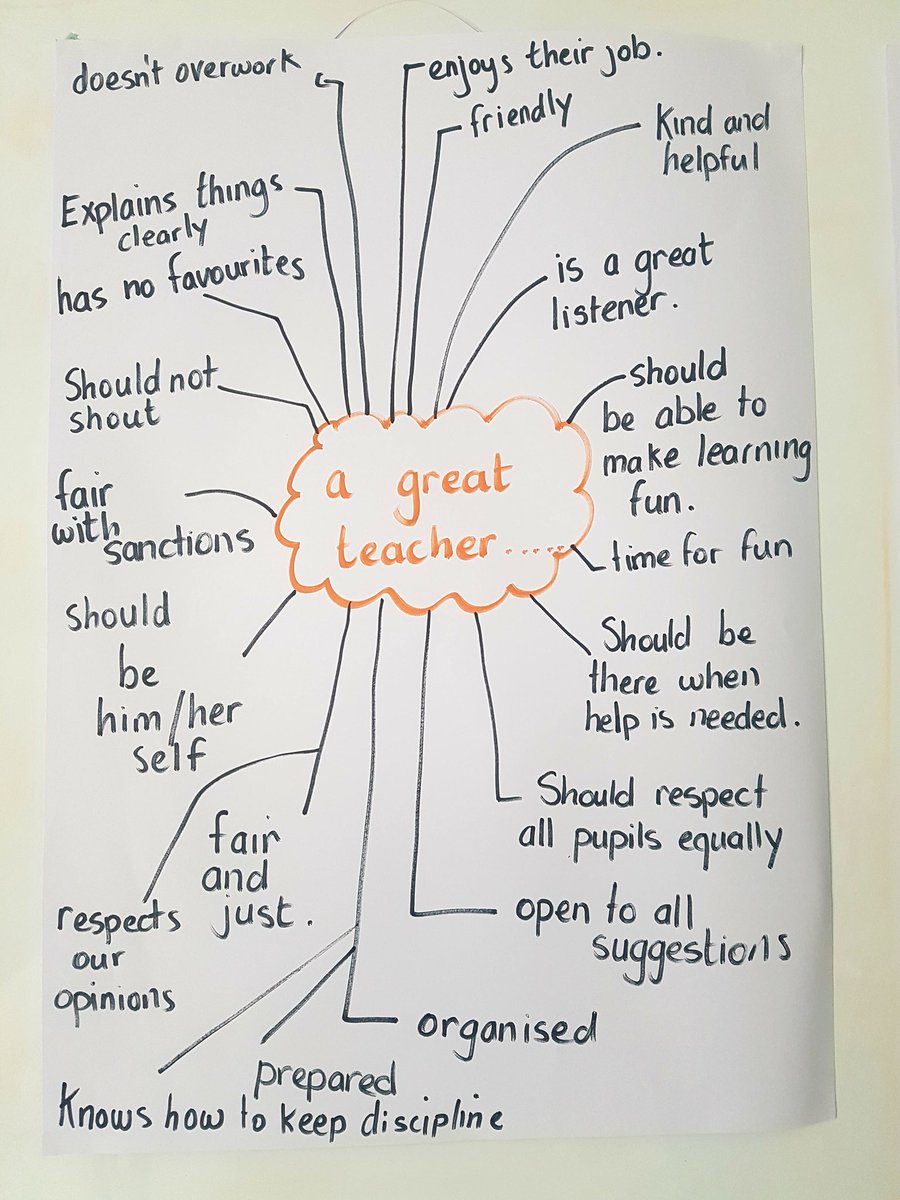 doesn't overwork
enjoys their job.
friendly
Kind and
helpful
Explains things
clearly
has no favourites
is a great
listener.
Should not
shout
should
be able to
make learning
fun.
a great
teacher.....
fair
with
sanctions
time for fun
should
be
him/her
self
Should be
there when
help is needed.
Should respect
all pupils equally
fair
and
just.
respects
our
opinions
open to all
suggestions
organised
prepared
Knows how to keep discipline